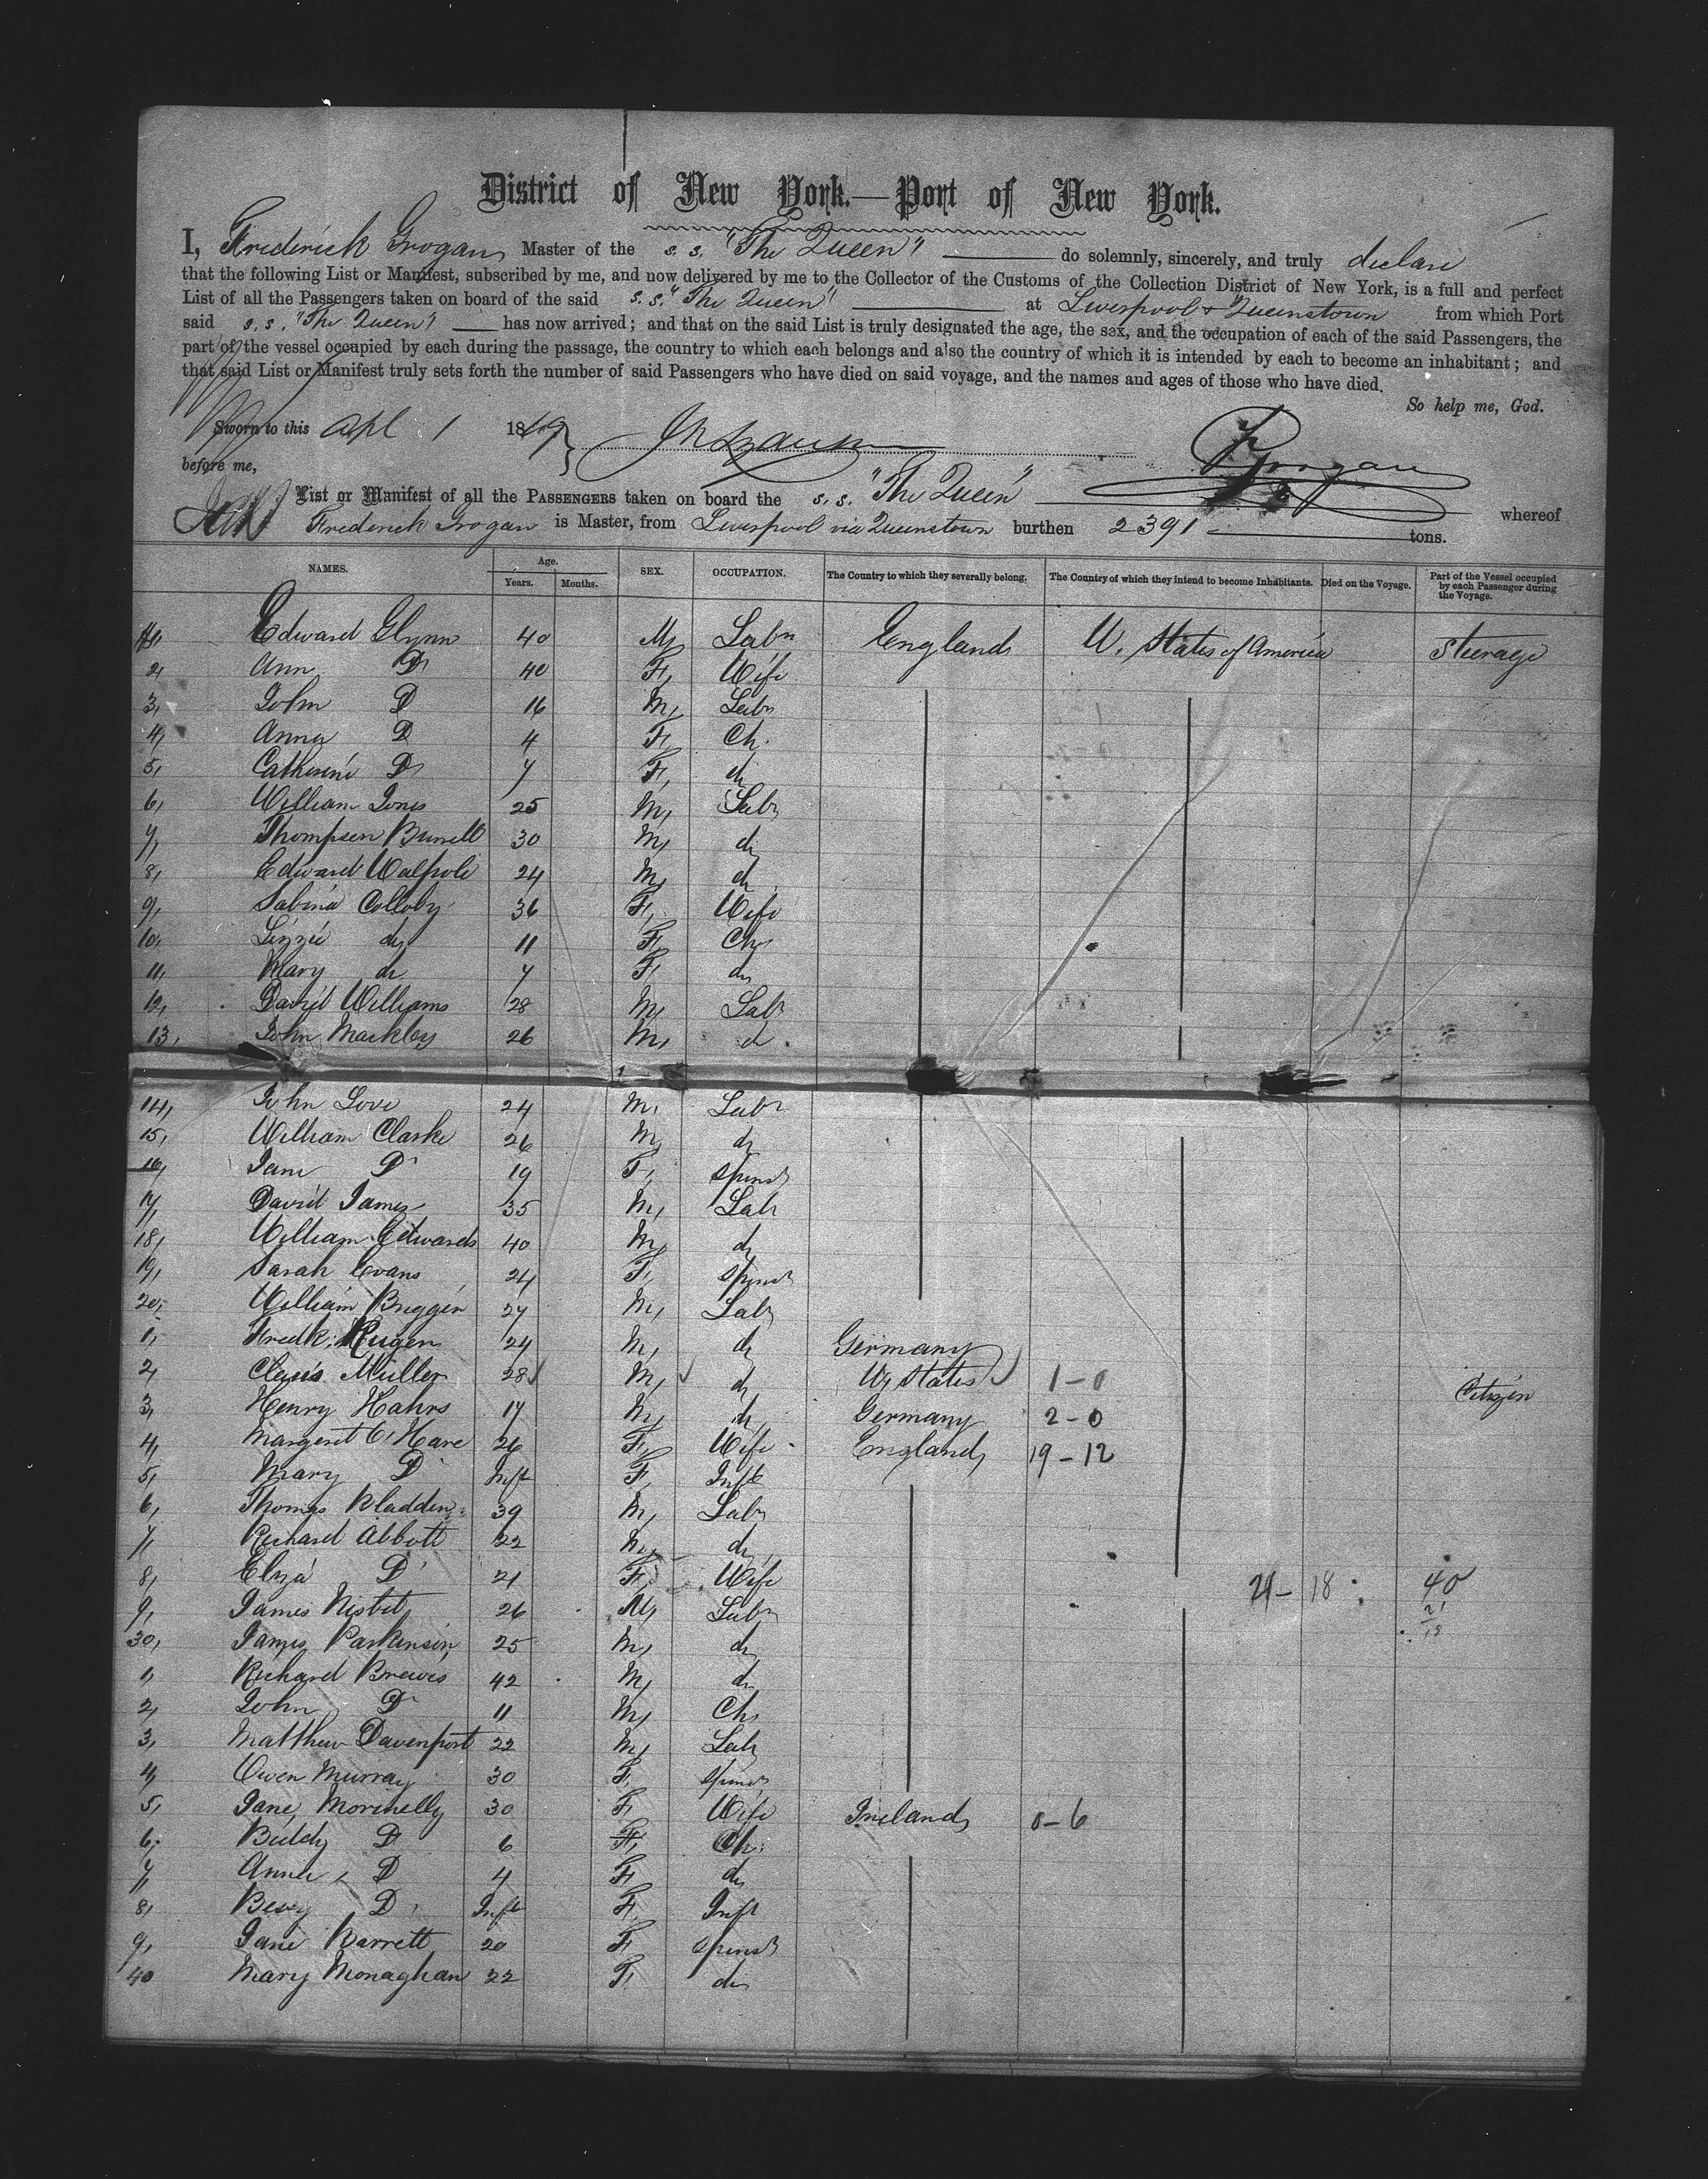 District of New York.—Port of New York.
I, Frederick Grogan Master of the s.s. "The Queen" do solemnly, sincerely, and truly declare
that the following List or Manifest, subscribed by me, and now delivered by me to the Collector of the Customs of the Collection District of New York, is a full and perfect
List of all the Passengers taken on board of the said s.s. "The Queen" at Liverpool & Queenstown from which Port
said s.s. "The Queen" has now arrived; and that on the said List is truly designated the age, the sex, and the occupation of each of the said Passengers, the
part of the vessel occupied by each during the passage, the country to which each belongs and also the country of which it is intended by each to become an inhabitant; and
that said List or Manifest truly sets forth the number of said Passengers who have died on said voyage, and the names and ages of those who have died.
So help me, God.
Sworn to this Apl 1 1869
before me,
F Grogan
List or Manifest of all the PASSENGERS taken on board the s.s. "The Queen" whereof
Frederick Grogan is Master, from Liverpool via Queenstown burthen 2391 tons.
NAMES. Age. Years. Months. SEX. OCCUPATION. The Country to which they severally belong. The Country of which they intend to become Inhabitants. Died on the Voyage. Part of the Vessel occupied by each Passenger during the Voyage.
1, Edward Glynn 40 M, Labr England U. States of America Steerage
2, Ann Do 40 F, Wife
3, John Do 16 M, Labr
4, Anna Do 4 F, Ch.
5, Catherine Do 7 F, do
6, William Jones 25 M, Labr
7, Thompson Burrell 30 M, do
8, Edward Walpole 24 M, do
9, Sabina Colloby 36 F, Wife
10, Lizzie do 11 F, Ch
11, Mary do 7 F, do
12, David Williams 28 M, Labr
13, John Mackley 26 M, do
14, John Love 24 M, Labr
15, William Clarke 26 M, do
16, Jane Do 19 F, Spinst
17, David James 35 M, Labr
18, William Edwards 40 M, do
19, Sarah Evans 24 F, Spinst
20, William Briggen 27 M, Labr
1, Fredk. Rugen 24 M, do Germany
2, Claus Müller 28 M, do U, States 1-0 Citizen
3, Henry Hahrs 17 M, do Germany 2-0
4, Margaret O'Hare 26 F, Wife England 19-12
5, Mary Do Inft F, Inft
6, Thomas Bladden 39 M, Labr
7, Richard Abbott 22 M, do
8, Eliza Do 21 F, Wife 21-18 40
9, James Nisbet 26 M, Labr 21
30, James Parkinson 25 M, do 18
1, Richard Brewis 42 M, do
2, John Do 11 M, Ch
3, Matthew Davenport 22 M, Labr
4, Owen Murray 30 F, Spinst
5, Jane Morinelly 30 F, Wife Ireland 0-6
6, Biddy Do 6 F, Ch.
7, Annie Do 4 F, do
8, Bessy Do Inft F, Inft
9, Jane Barrett 20 F, Spinst
40 Mary Monaghan 22 F, do